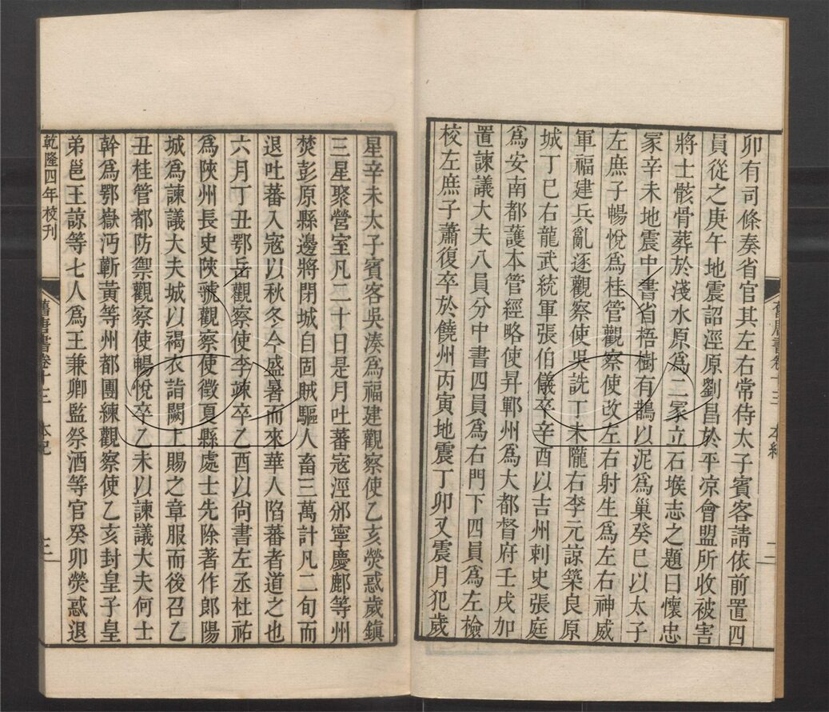 卯有司條奏省官其左右常侍太子賓客請依前置四
員從之庚午地震詔涇原劉昌於平涼會盟所收被害
將士骸骨葬於淺水原爲二冢立石堠志之題曰懷忠
冢辛未地震中書省梧樹有鵲以泥爲巢癸巳以太子
左庶子暢悅爲桂管觀察使改左右射生爲左右神威
軍福建兵亂逐觀察使吳詵丁未隴右李元諒築良原
城丁巳右龍武統軍張伯儀卒辛酉以吉州刺史張庭
爲安南都護本管經略使昇鄆州爲大都督府壬戌加
置諫議大夫八員分中書四員爲右門下四員爲左檢
校左庶子蕭復卒於饒州丙寅地震丁卯又震月犯歲
舊唐書卷十三 本紀 二
星辛未太子賓客吳湊爲福建觀察使乙亥熒惑歲鎮
三星聚營室凡二十日是月吐蕃寇涇邠寧慶鄜等州
焚彭原縣邊將閉城自固賊驅人畜三萬計凡二旬而
退吐蕃入寇以秋冬今盛暑而來華人陷蕃者道之也
六月丁丑鄂岳觀察使李竦卒乙酉以尙書左丞杜祐
爲陝州長史陝虢觀察使徵夏縣處士先除著作郎陽
城爲諫議大夫城以褐衣詣闕上賜之章服而後召乙
丑桂管都防禦觀察使暢悅卒乙未以諫議大夫何士
幹爲鄂嶽沔蘄黃等州都團練觀察使乙亥封皇子皇
弟邕王諒等七人爲王兼卿監祭酒等官癸卯熒惑退
乾隆四年校刊 舊唐書卷十三 本紀 三